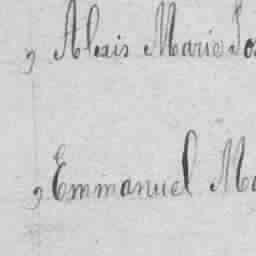 , Alexis Marie Jos
, Emmanuel Ma